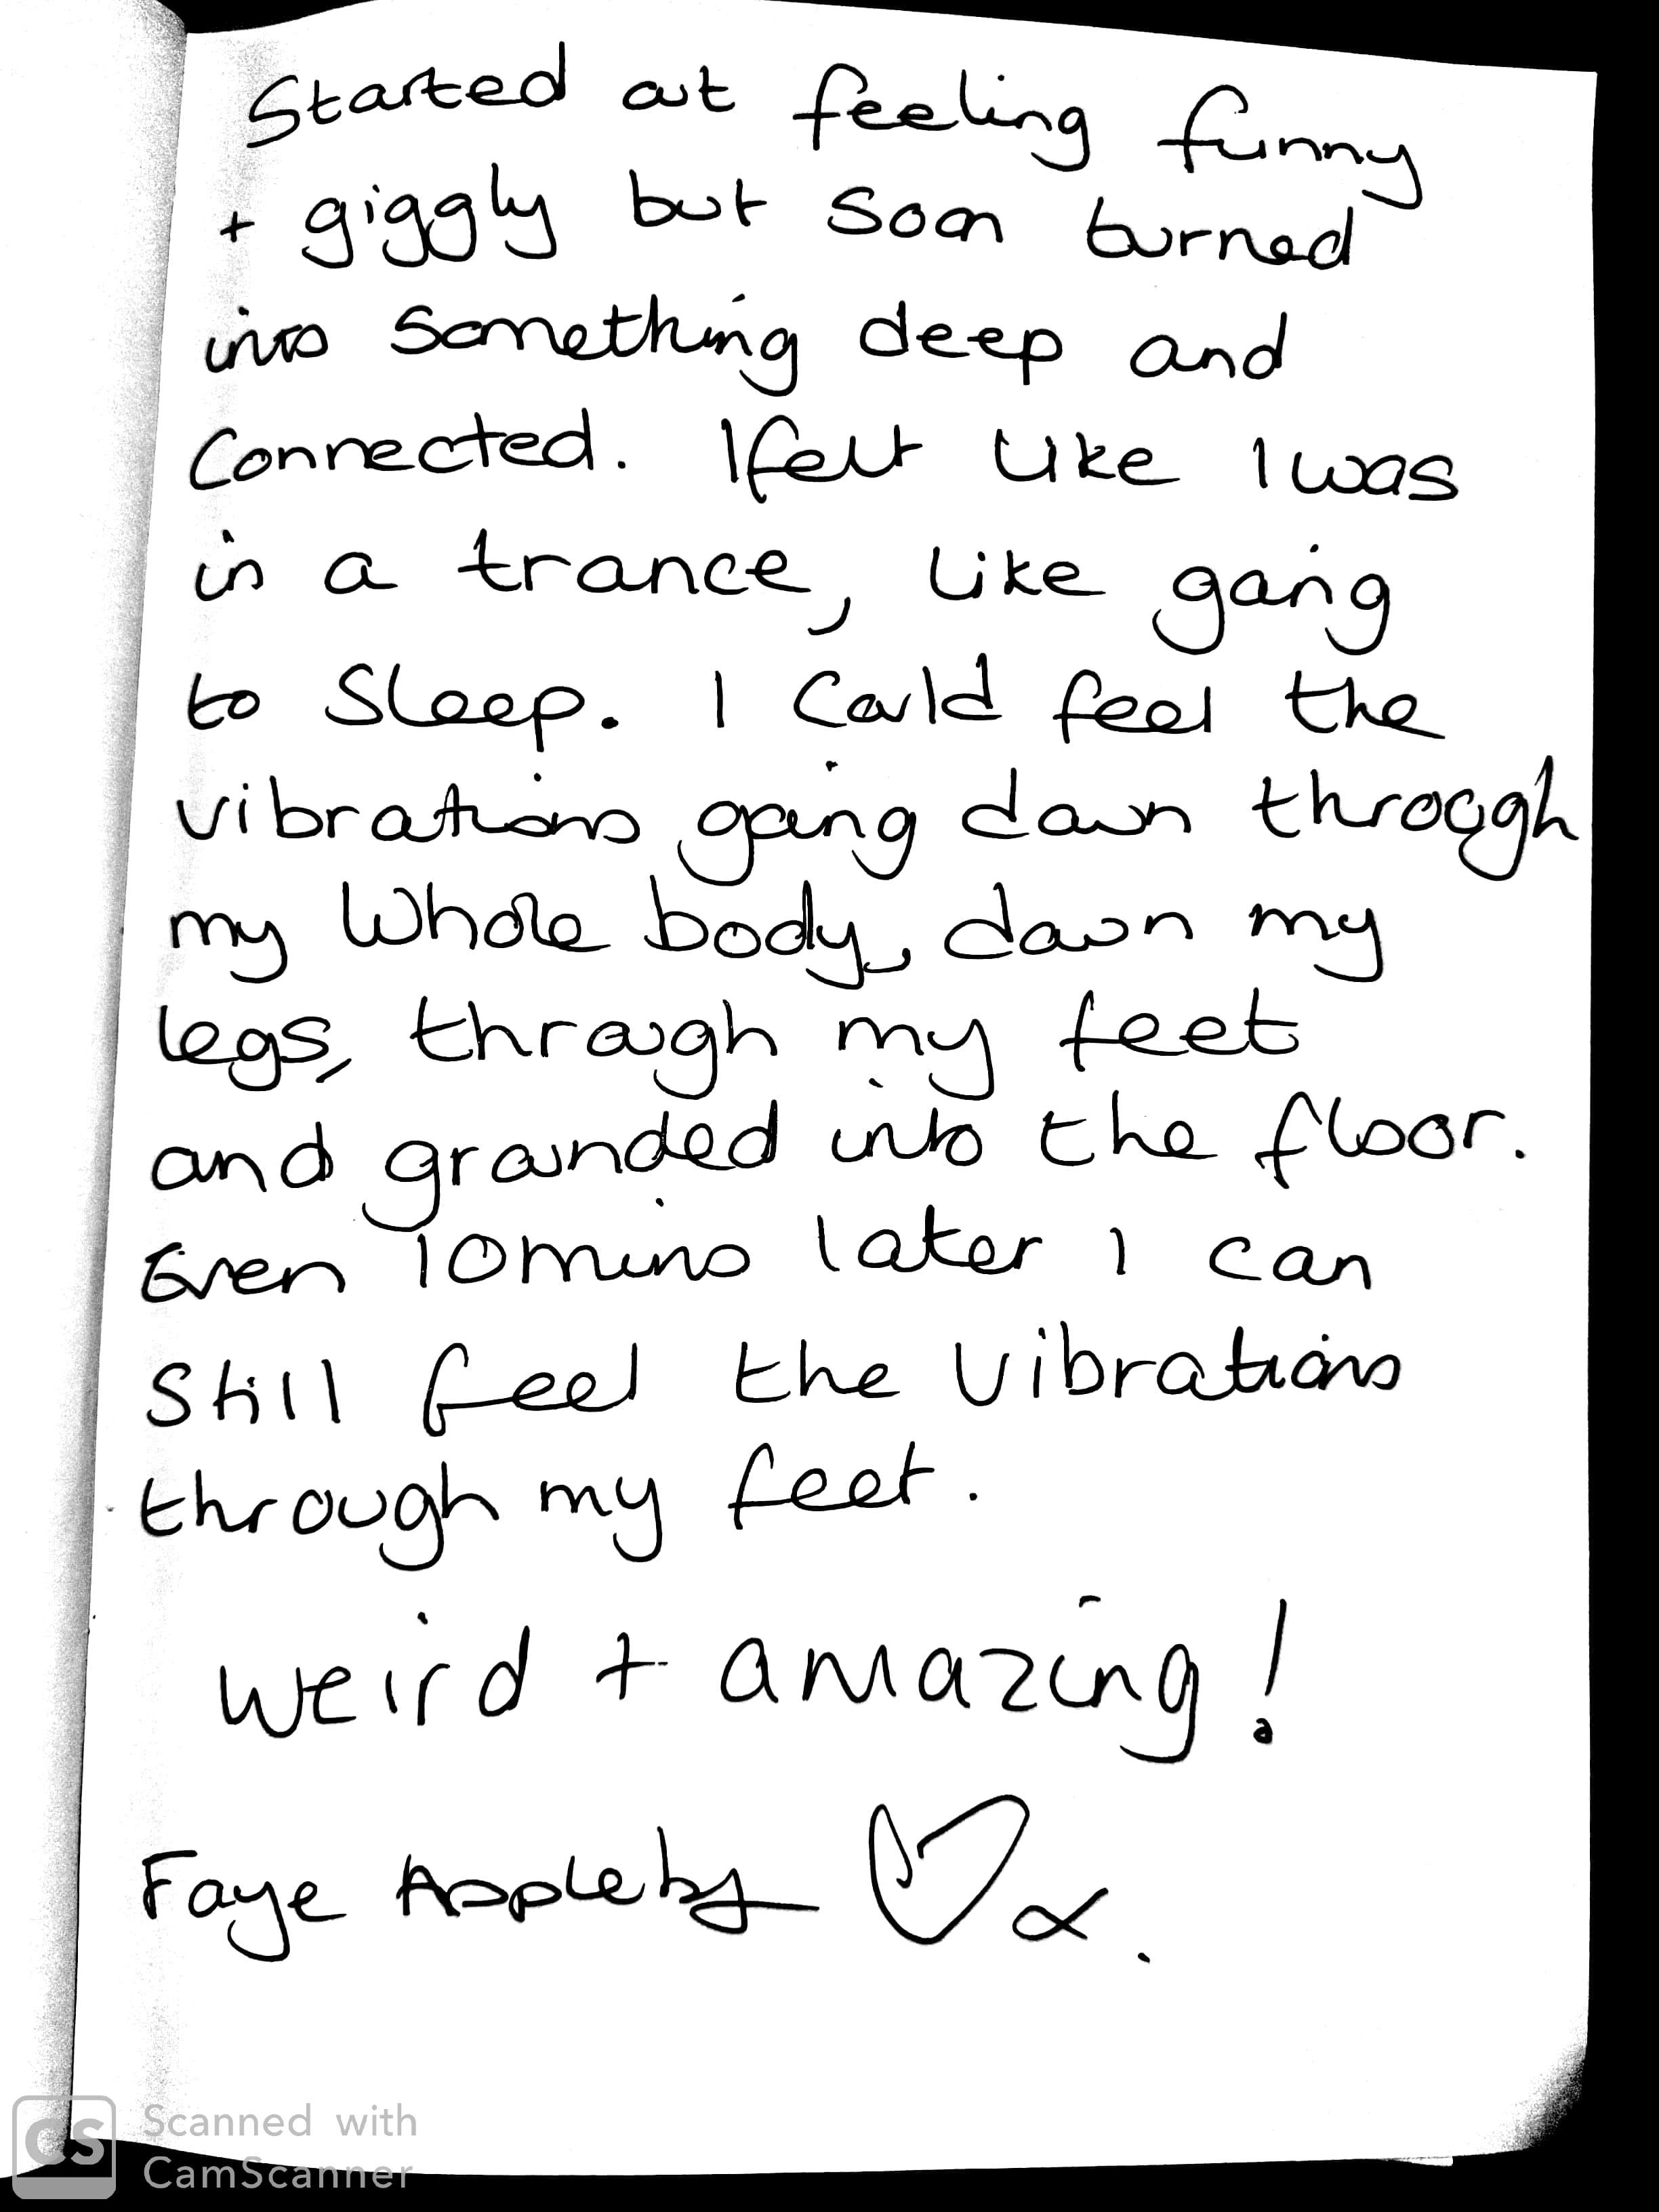 Started out feeling funny
+ giggly but soon turned
into something deep and
Connected. I felt like I was
in a trance, like going
to Sleep. I Could feel the
vibrations going down through
my Whole body, down my
legs, through my feet
and grounded into the floor.
Even 10mins later I can
Still feel the Vibrations
through my feet.
Weird + amazing!
Faye Appleby ♡ x.
CS Scanned with
CamScanner